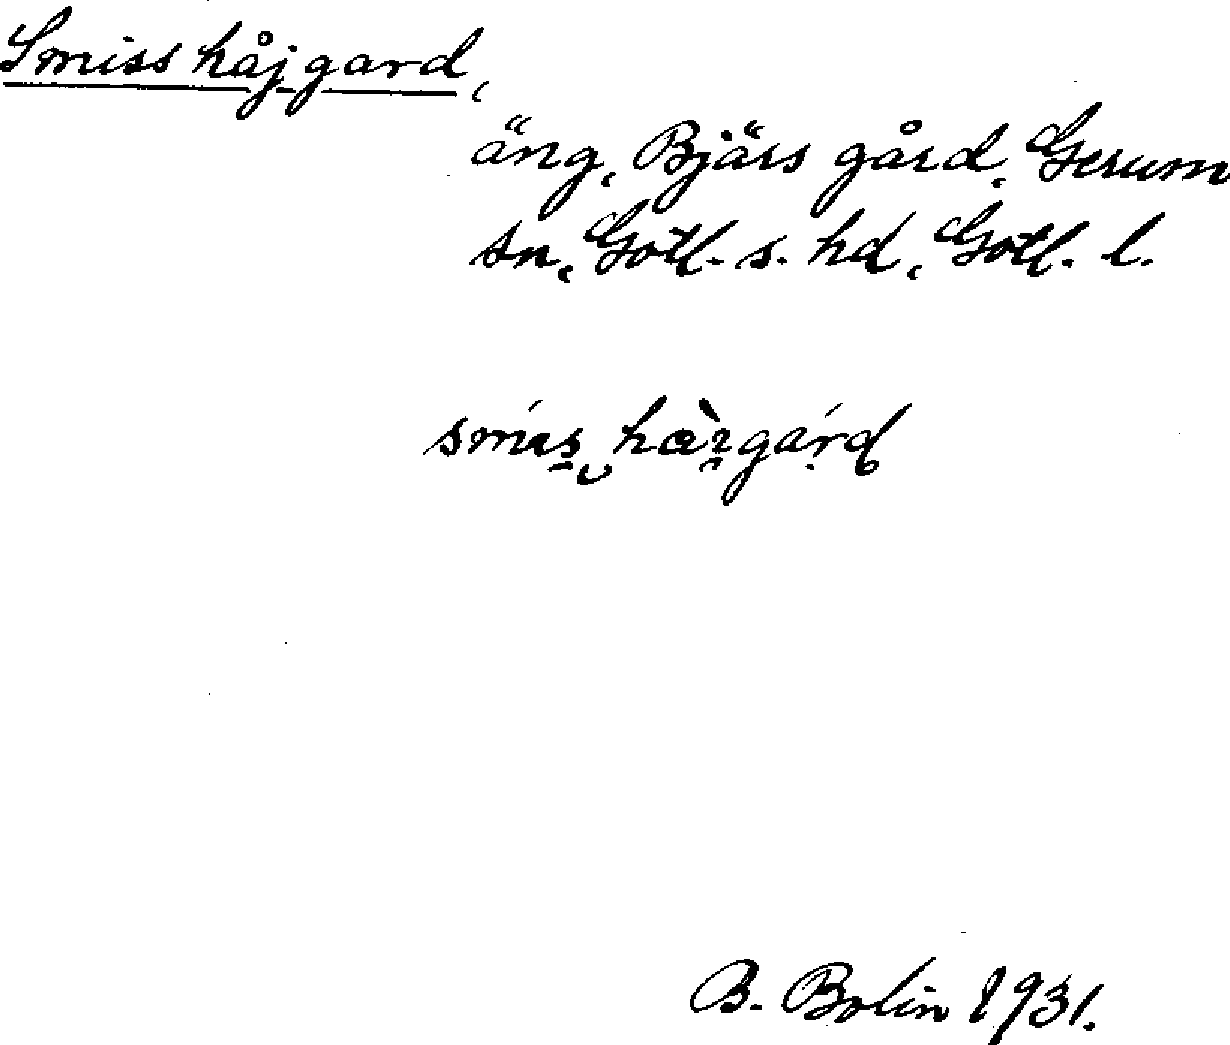 Smiss håjgard,
äng, Bjärs gård, Gerum
sn, Gotl. s. hd, Gotl. l.
B. Bolin 1931.